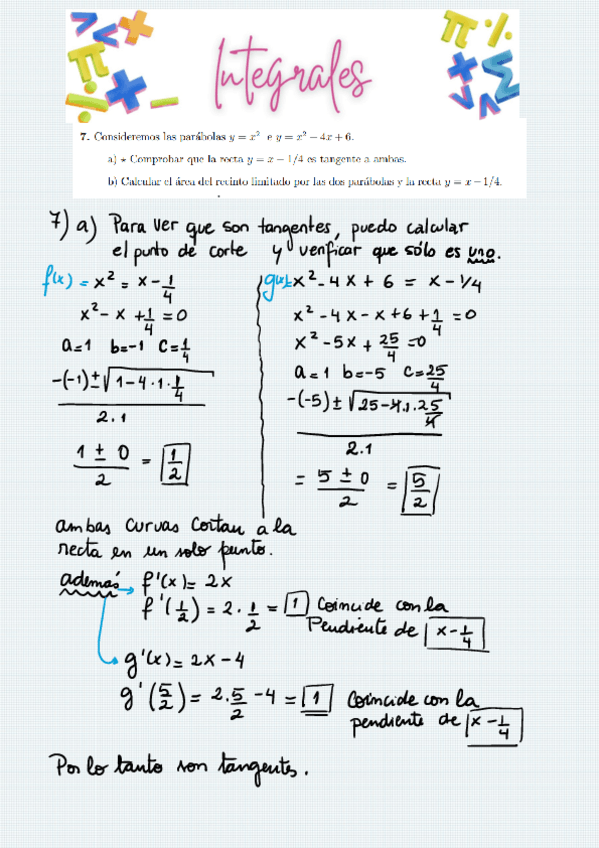 Integrales
7. Consideremos las parábolas y = x² e y = x² − 4x + 6.
a) ⋆ Comprobar que la recta y = x − 1/4 es tangente a ambas.
b) Calcular el área del recinto limitado por las dos parábolas y la recta y = x − 1/4.
7) a) Para ver que son tangentes, puedo calcular
el punto de corte y verificar que sólo es uno.
f(x) = x² = x - 1/4
x² - x + 1/4 = 0
a=1 b=-1 c=1/4
-(-1) ± √1-4·1·1/4
2·1
1 ± 0 / 2 = 1/2
g(x)= x² - 4x + 6 = x - 1/4
x² - 4x - x + 6 + 1/4 = 0
x² - 5x + 25/4 = 0
a=1 b=-5 c=25/4
-(-5) ± √25-4·1·25/4
2·1
= 5 ± 0 / 2 = 5/2
ambas curvas cortan a la
recta en un solo punto.
además f'(x) = 2x
f'(1/2) = 2·1/2 = 1 Coincide con la
Pendiente de x - 1/4
g'(x) = 2x - 4
g'(5/2) = 2·5/2 - 4 = 1 Coincide con la
pendiente de x - 1/4
Por lo tanto son tangentes.